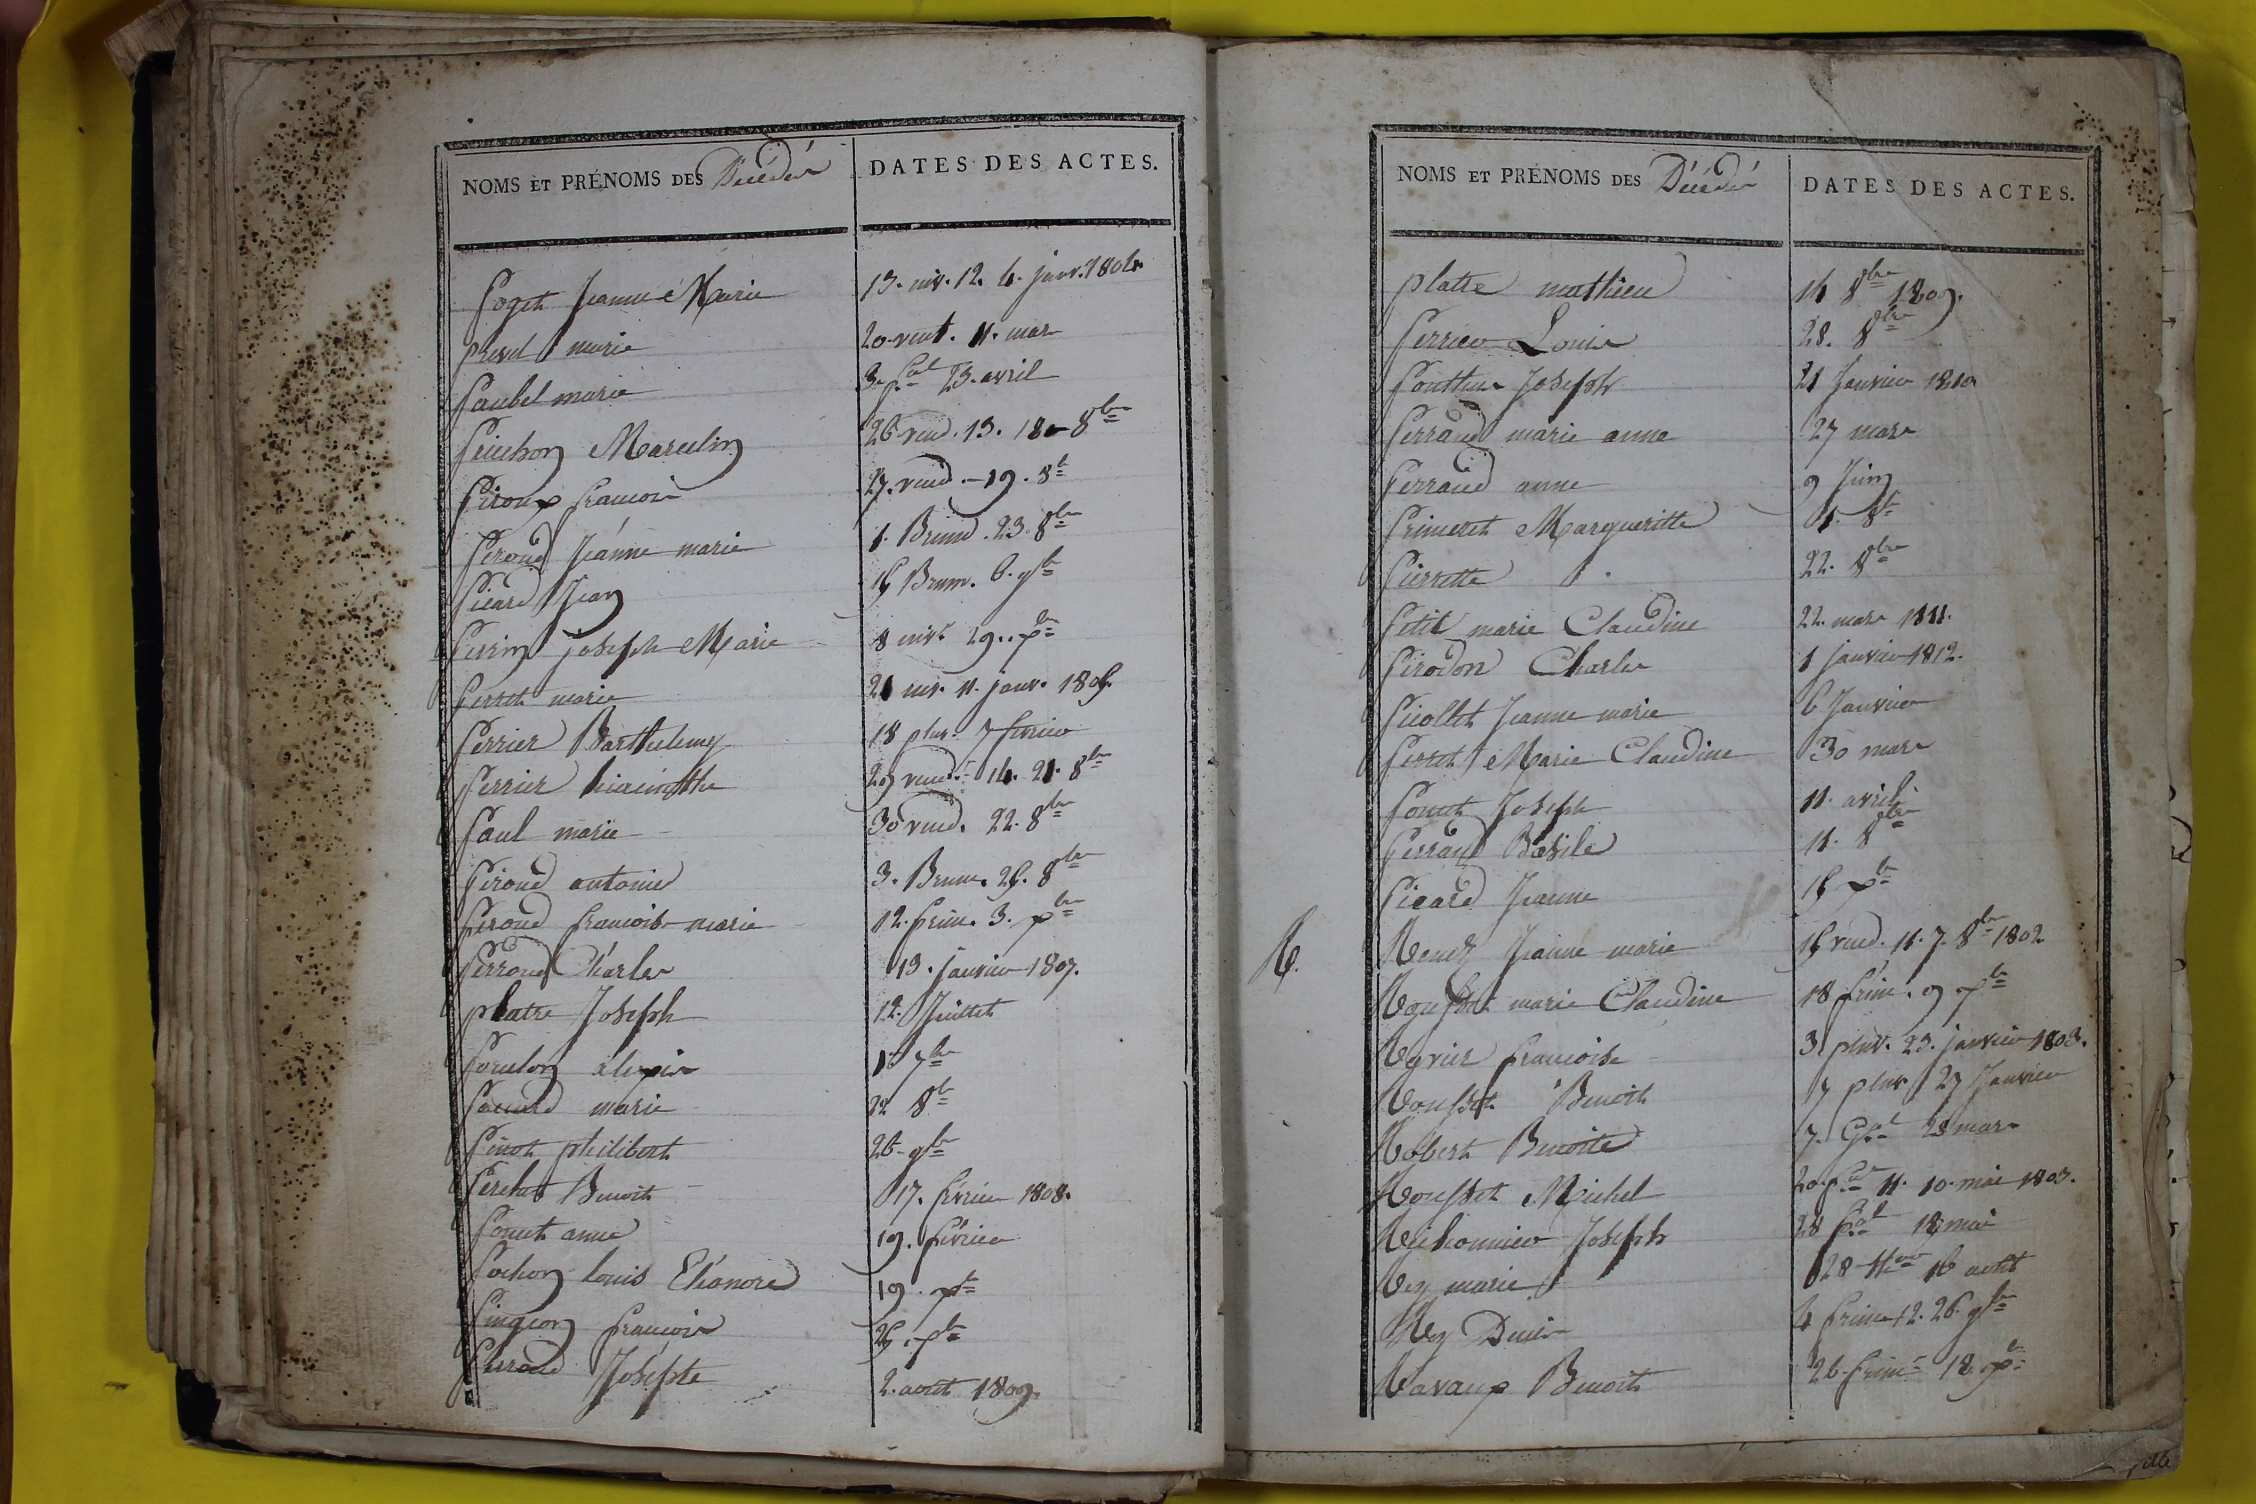 NOMS ET PRÉNOMS DES Décédés DATES DES ACTES.
Poget Jeanne Marie 13. niv. 12. 4. janv. 1804
prevel marie 20 vent. 11. mars
Paubel marie 3. f.al 23. avril
Peuchon Marcelin 26 vend. 13. 18 8bre
Piroux francois 27. vend. 19. 8b
Peroud Jeanne marie 1. Brum. 23. 8bre
Picard Jean 15 Brum. 6. 9b
Perrin joseph Marie 8 niv. 29. xbre
Perret marie 21 niv. 11. janv. 1805.
Perrier Barthelemy 18 pluv. 7 fevrier
Perrier hiacinthe 29 vend. 14. 21. 8bre
Paul marie 30 vend. 22. 8bre
Peroud antoine 3. Brum. 25. 8bre
Peroud francois marie 12. frim. 3. xbre
Perroud Charles 13. janvier 1807.
platre Joseph 12. Juillet
alexis 7bre
marie 22 8b
Pinot philibert 26 9bre
Benoit 17. février 1808.
Ponut anne 19. février
Pochon louis Eléanore 19. xb
Pingeon francois 25. xb
Perroud Josephte 2. aout 1809.
NOMS ET PRÉNOMS DES Décédés DATES DES ACTES.
platre mathieu 14 8bre 1809.
Perrier Louis 28. 8bre
Joseph 21 Janvier 1810
Perraud marie anne 27 mars
Perraud anne 9 Juin
Primeret Margueritte 1. 8b
Pierrette 22. 8bre
Petit marie Claudine 22. mars 1811.
Pirodon Charles 1 janvier 1812.
Picollet Jeanne marie 6 Janvier
Perret Marie Claudine 30 mars
Ponut Joseph 11. avril
Perraud Basile 11. 8bre
Picard Jeanne 15 xb
R.
Jeanne marie 15 vend. 11. 7. 8bre 1802
marie Claudine 18 frim. 9 xb
Reyvier francoise 3 pluv. 23. janvier 1803.
Rousset Benoit 7 pluv. 27 Janvier
Robert Benoite 7. G.al 28 mars
Rousset Michel 20. f.al 11. 10. mai 1803.
Joseph 28 f.al 18 mai
Rey marie 28 16 août
Rey Denis 4 frim. 12. 26. 9b
Ravaux Benoit 26 frim. 18. xb